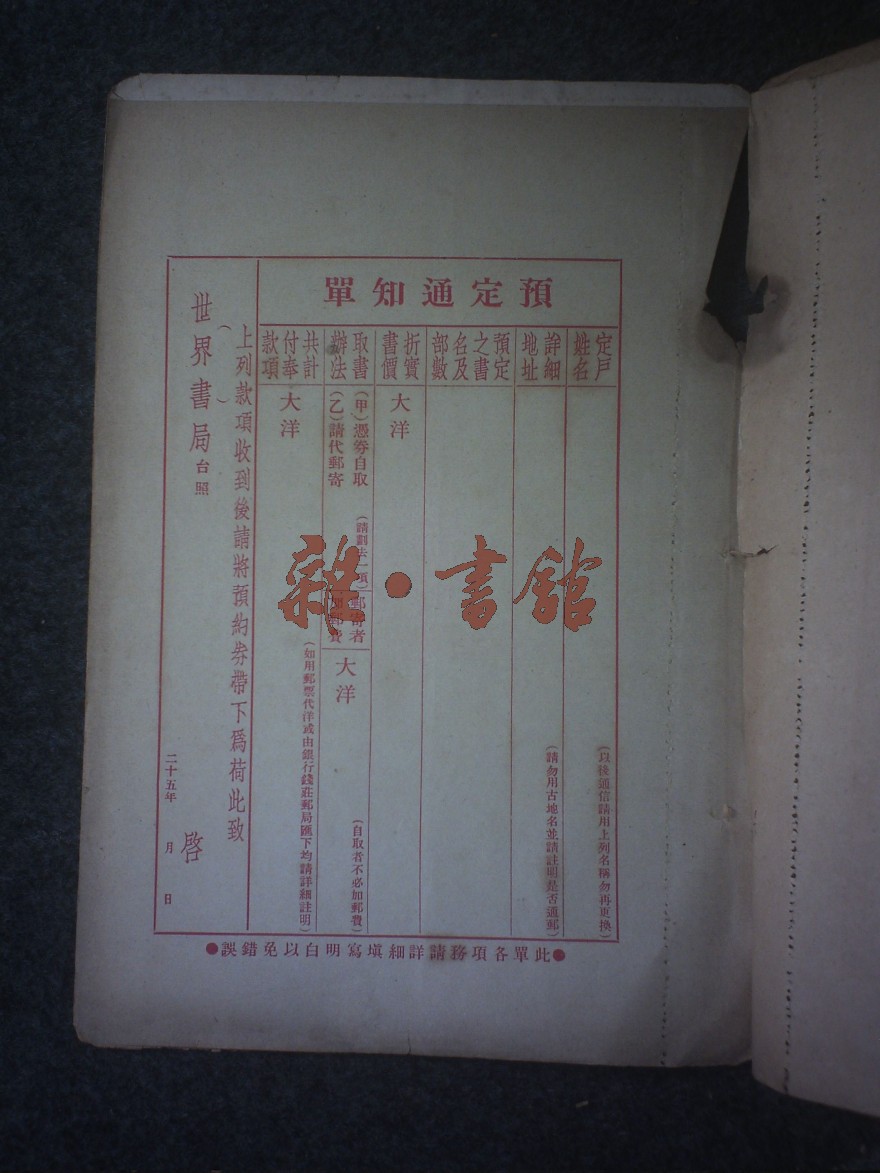 預定通知單
定戶姓名
(以後通信請用上列名稱勿再更換)
詳細地址
(請勿用古地名並請註明是否通郵)
預定之書名及部數
折實書價
大洋
取書辦法
(甲)憑券自取
(乙)請代郵寄
(請劃去一項)
郵寄者加郵費
大洋
(自取者不必加郵費)
共計付奉款項
大洋
(如用郵票代洋或由銀行錢莊郵局匯下均請詳細註明)
上列款項收到後請將預約券帶下為荷此致
世界書局台照
啓
二十五年 月 日
●此單各項務請詳細填寫明白以免錯誤●
雜·書館